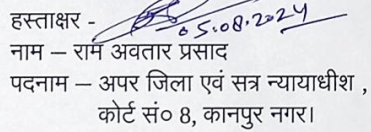 हस्ताक्षर - 05.08.2024
नाम – राम अवतार प्रसाद
पदनाम – अपर जिला एवं सत्र न्यायाधीश ,
कोर्ट सं० 8, कानपुर नगर।